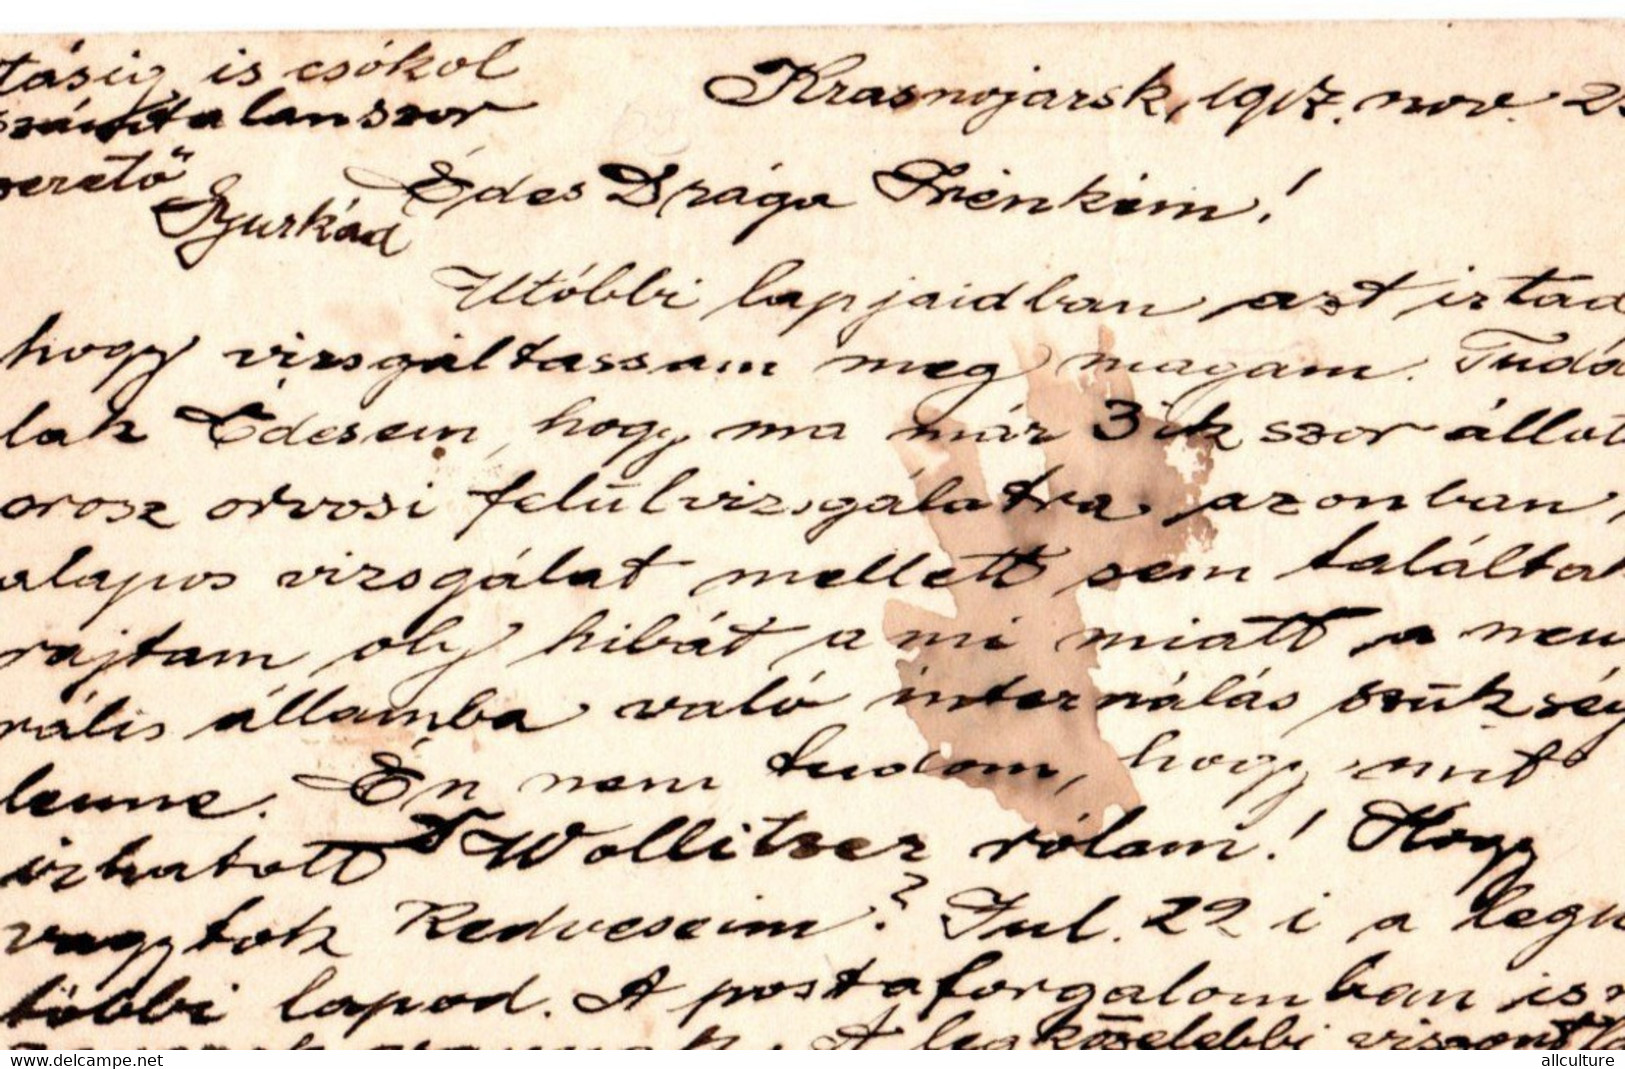 Krasnojarsk, 1917. nov. 2
Édes Drága Irénkém!
Utóbbi lapjaidban azt irtad
hogy vizsgáltassam meg magam. Tuda
lak Édesem, hogy ma már 3 ik szor állot
orosz orvosi felülvizsgálatra, azonban,
alapos vizsgálat mellett sem találtak
rajtam oly hibát a mi miatt a neu
rális államba való internálás szükség
lenne. Én nem tudom, hogy mit
irhatott Dr Wollitzer rólam! Hogy
vagytok Kedveseim? Jul. 22 i a legu
tóbbi lapod. A postaforgalomban is
A legközelebbi viszontlá
tásig is csókol
számtalanszor
szerető
Gyurkád
allculture
www.delcampe.net